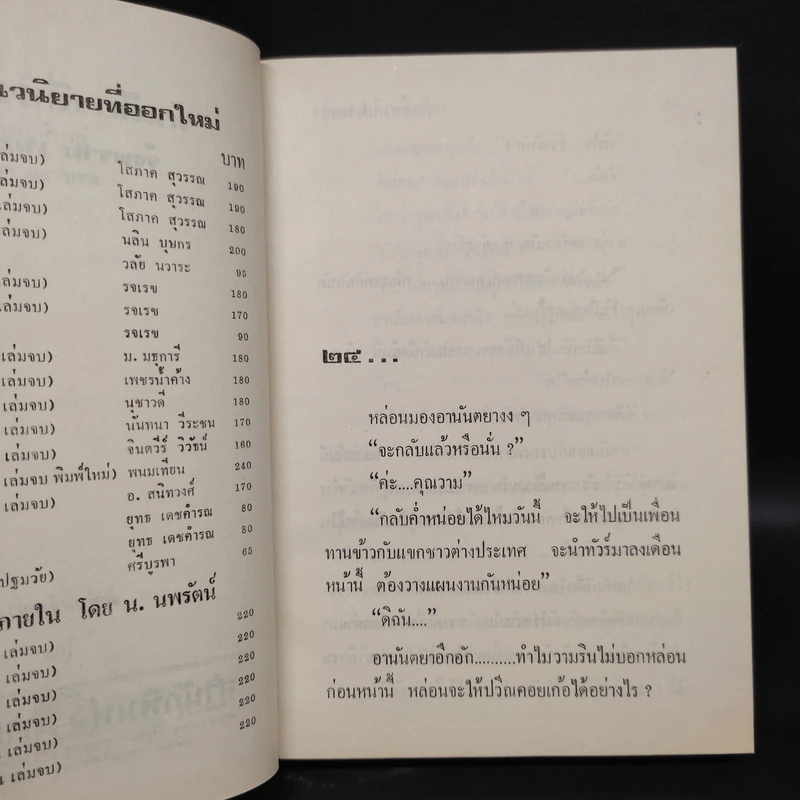 วนิยายที่ออกใหม่
บาท
เล่มจบ) โสภาค สุวรรณ 190
เล่มจบ) โสภาค สุวรรณ 190
เล่มจบ) โสภาค สุวรรณ 180
เล่มจบ) นลิน บุษกร 200
วลัย นวาระ 95
เล่มจบ) รจเรข 180
เล่มจบ) รจเรข 170
รจเรข 90
เล่มจบ) ม. มธุการี 180
เล่มจบ) เพชรน้ำค้าง 180
เล่มจบ) นุชาวดี 180
เล่มจบ) นันทนา วีระชน 170
เล่มจบ) จินตวีร์ วิวัธน์ 160
เล่มจบ พิมพ์ใหม่) พนมเทียน 240
เล่มจบ) อ. สนิทวงศ์ 170
ยุทธ เดชคำรณ 80
ยุทธ เดชคำรณ 80
ปฐมวัย) ศรีบูรพา 65
ภายใน โดย น. นพรัตน์
เล่มจบ) 220
เล่มจบ) 220
เล่มจบ) 220
เล่มจบ) 220
เล่มจบ) 220
เล่มจบ)
๒๔...
หล่อนมองอานันตยางง ๆ
“จะกลับแล้วหรือนั่น ?”
“ค่ะ....คุณวาม”
“กลับค่ำหน่อยได้ไหมวันนี้ จะให้ไปเป็นเพื่อน
ทานข้าวกับแขกชาวต่างประเทศ จะนำทัวร์มาลงเดือน
หน้านี้ ต้องวางแผนงานกันหน่อย”
“ดิฉัน....”
อานันตยาอึกอัก..........ทำไมวามรินไม่บอกหล่อน
ก่อนหน้านี้ หล่อนจะให้ปวีณคอยเก้อได้อย่างไร ?